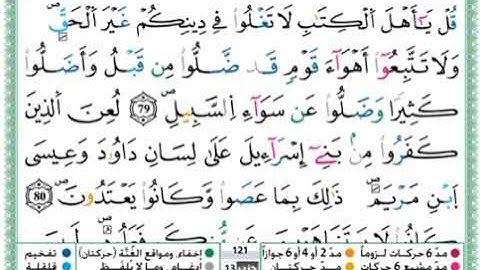 قُلْ يَٰٓأَهْلَ اَ۬لْكِتَٰبِ لَا تَغْلُواْ فِے دِينِكُمْ غَيْرَ اَ۬لْحَقِّۖ
وَلَا تَتَّبِعُوٓاْ أَهْوَآءَ قَوْمٖ قَد ضَّلُّواْ مِن قَبْلُ وَأَضَلُّواْ
كَثِيراٗ وَضَلُّواْ عَن سَوَآءِ اِ۬لسَّبِيلِۖ 79 لُعِنَ اَ۬لذِينَ
كَفَرُواْ مِنۢ بَنِےٓ إِسْرَآءِيلَ عَلَىٰ لِسَانِ دَاوُۥدَ وَعِيسَى
اَ۪بْنِ مَرْيَمَۖ ذَٰلِكَ بِمَا عَصَواْ وَّكَانُواْ يَعْتَدُونَۖ 80
مدّ 6 حركات لزوماً مدّ 2 أو 4 أو 6 جوازاً 121 إخفاء، ومواقع الغُنَّة (حركتان) تفخيم
مدّ مشبع 6 حركات مدّ حركتان 13 إدغام، وما لا يُلفظ قلقلة